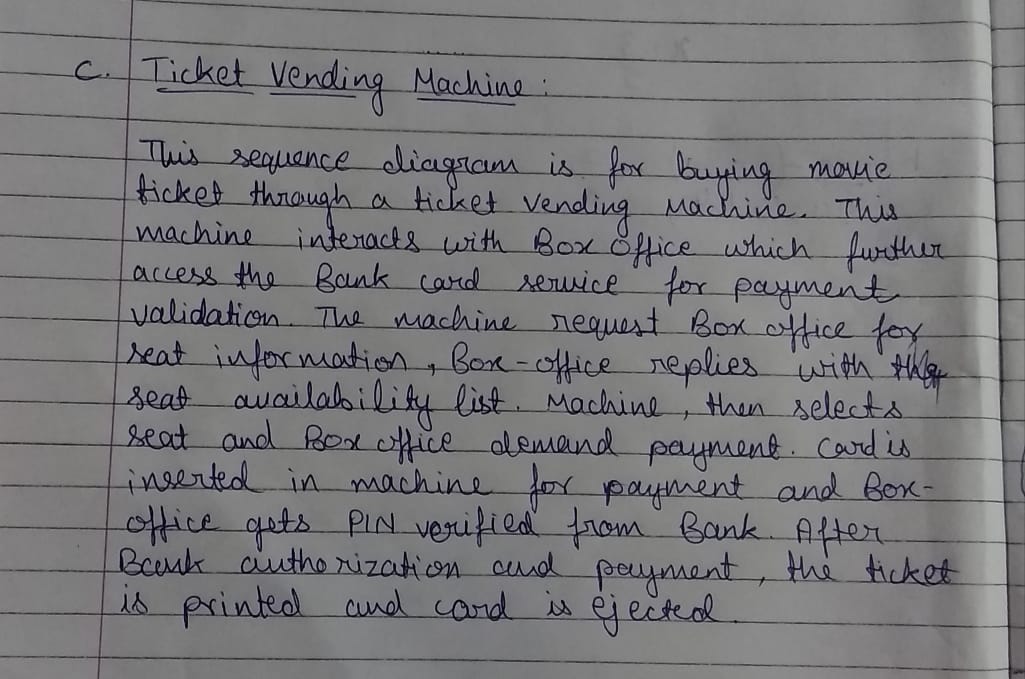 C. Ticket Vending Machine :
This sequence diagram is for buying movie
ticket through a ticket vending Machine. This
machine interacts with Box Office which further
access the Bank card service for payment
validation. The machine request Box office for
seat information, Box-office replies with the
seat availability list. Machine, then selects
seat and Box office demand payment. Card is
inserted in machine for payment and Box-
office gets PIN verified from Bank. After
Bank authorization and payment, the ticket
is printed and card is ejected.